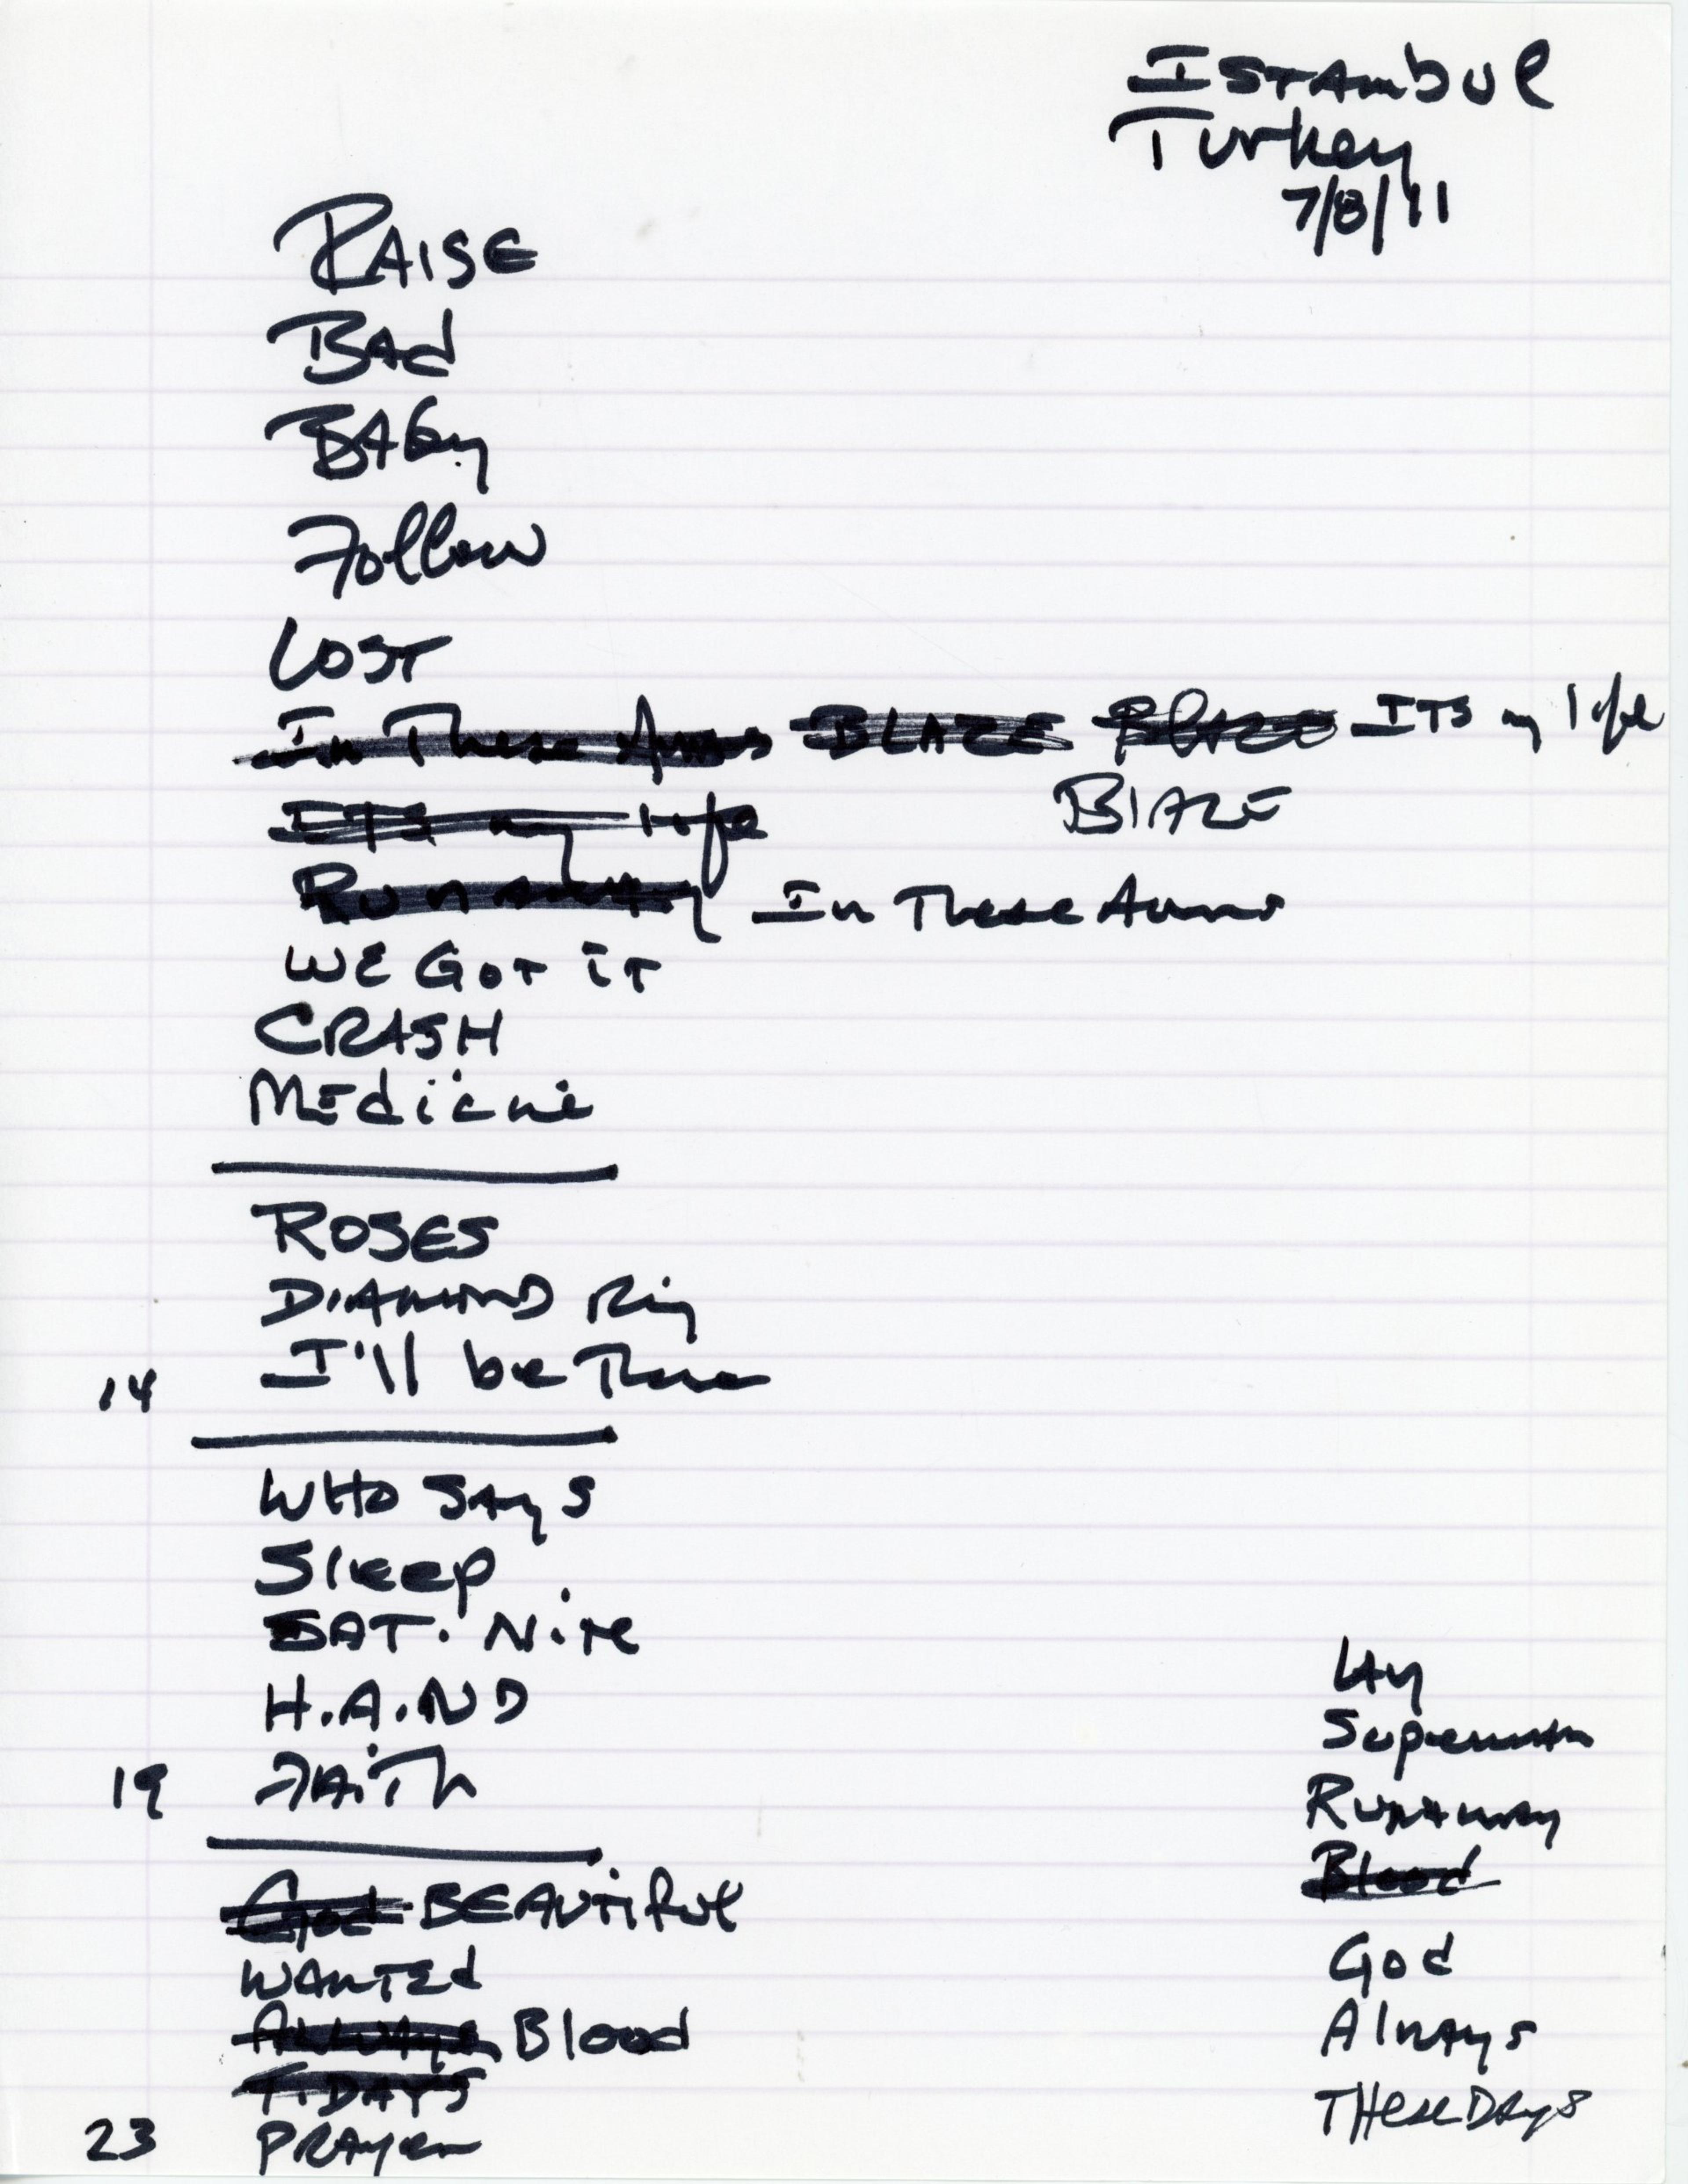 ISTAmbul
Turkey
7/8/11
RAISE
BAd
BABy
Follow
LOST
In These Arms BLAZE Blaze ITS my life
ITS my life BlAZE
Runaway In These Arms
WE GoT iT
CRASH
MEdicine
ROSES
DIAMOND Ring
14 I'll be There
WHO SAyS
Sleep
SAT. NiTe
H.A.ND
19 FAiTh
God BEAUTiful
WANTEd
Always Blood
T.DAYS
23 PRAyer
LAy
Superman
RunAway
Blood
God
AlwAyS
THese DAyS